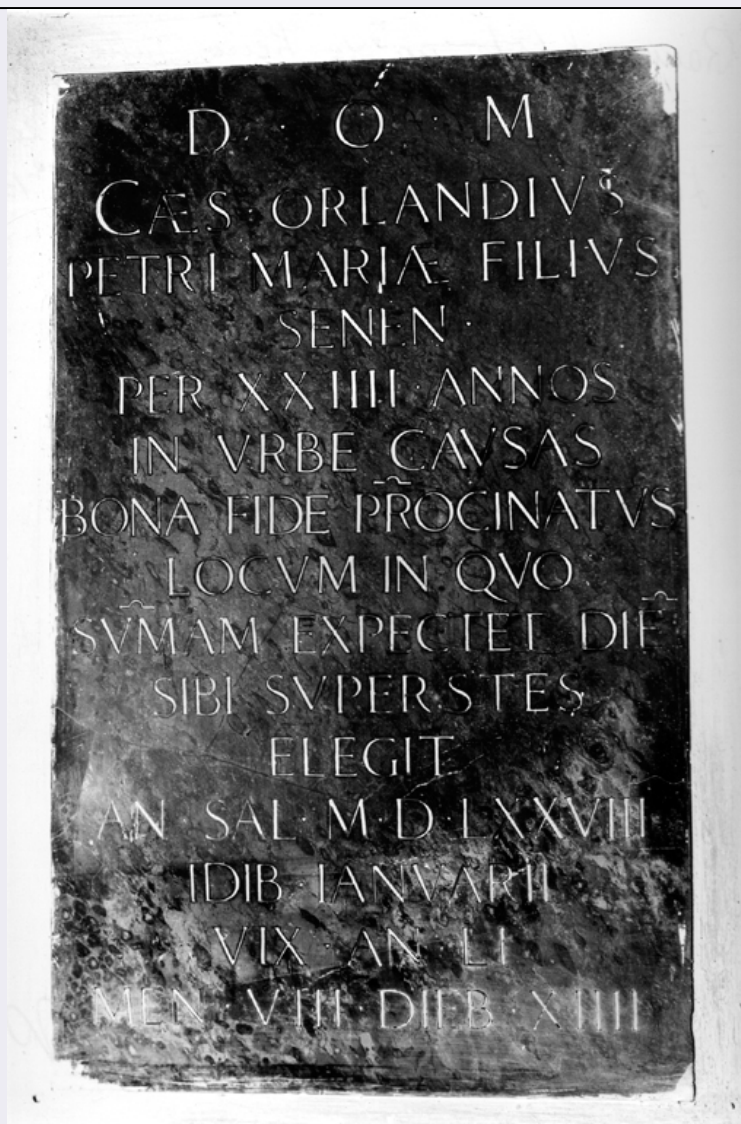 D · O · M
CÆS · ORLANDIVS
PETRI MARIÆ FILIVS
SENEN ·
PER XXIIII · ANNOS
IN VRBE CAVSAS
BONA FIDE PR̃OCINATVS
LOCVM IN QVO
SVM̃AM EXPECTET DIẼ
SIBI SVPERSTES
ELEGIT
AN SAL · M · D · LXXVIII
IDIB · IANVARII
VIX · AN · LI
MEN · VIII · DIEB · XIIII